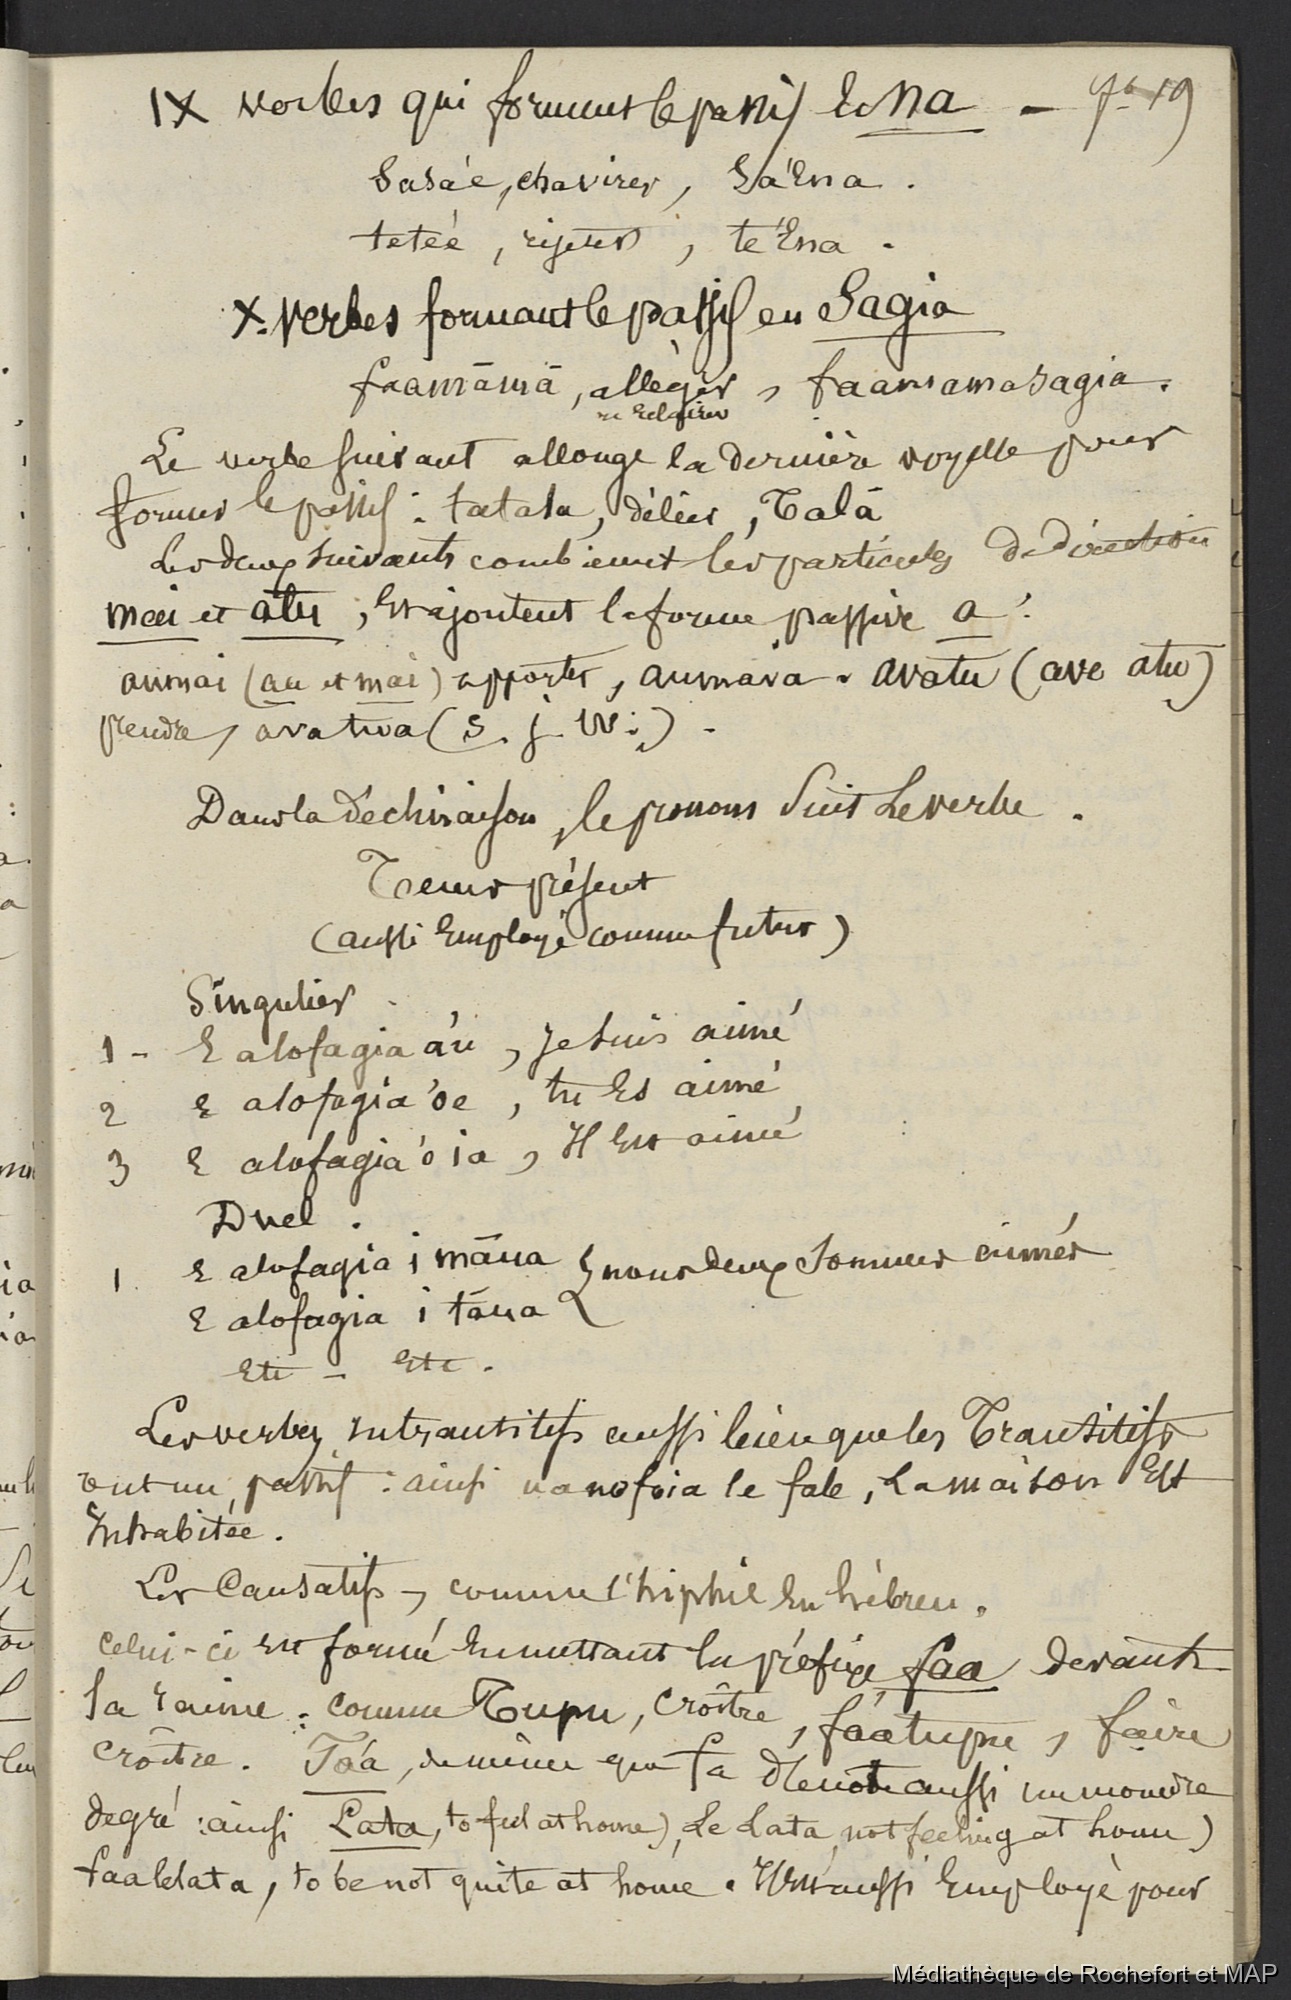 IX verbes qui forment le passif en na — 19
Sasáe, chavirer, Sá'ena.
tetée, rejeter, té'ena.
X. verbes formant le passif en Sagia
faamāmā, alléger, faamamasagia.
ou éclairer
Le verbe suivant allonge la dernière voyelle pour
former le passif : tatala, délier, Talā
Les deux suivants combinent les particules de direction
mai et atu, et ajoutent la forme passive a :
aumai (au et mai) apporter, aumaia. avatu (ave atu)
prendre, avatua (S. j. W.).
Dans la déclinaison, le pronom suit le verbe.
Temps présent
(aussi employé comme futur)
Singulier
1 - E alofagia a'u, je suis aimé
2 E alofagia 'oe, tu es aimé
3 E alofagia 'o ia, Il est aimé
Duel.
1. E alofagia i māua { nous deux sommes aimés
E alofagia i tāua
Etc - Etc.
Les verbes intransitifs aussi bien que les Transitifs
ont un passif : ainsi ua nofoia le fale, La maison Est
Inhabitée.
Les Causatifs, comme l'hiphil en hébreu.
Celui-ci est formé en mettant le préfixe faa devant
la racine : comme Tupu, croître, fáatupu, faire
croître. Fáa, de même que fa dénote aussi un moindre
degré : ainsi Lata, to feel at home), Le lata, not feeling at home)
faalelata, to be not quite at home. Il est aussi Employé pour
Médiathèque de Rochefort et MAP